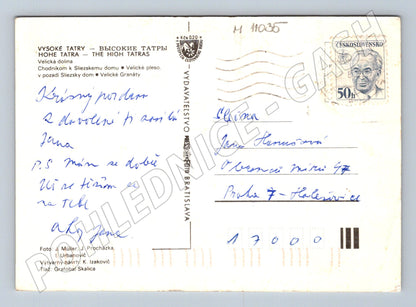 M 11035
VYSOKÉ TATRY – ВЫСОКИЕ ТАТРЫ
HOHE TATRA – THE HIGH TATRAS
Velická dolina
Chodníkom k Sliezskemu domu • Velické pleso,
v pozadí Sliezsky dom • Velické Granáty
Krásný pozdrav
z dovolené ti posílá
Jana
P.S. Mám se dobře
Už se těším
na Tebe
Ahoj Jana
Foto: J. Müller, J. Procházka,
I. Urbanovič
Výtvarný návrh: K. Izakovič
Tlač: Grafobal Skalica
VYDAVATEĽSTVO BRATISLAVA
ČESKOSLOVENSKO
50 h
Jana
Obránců míru 47
Praha 7 - Holešovice
17000
POHLEDNICE - GASH